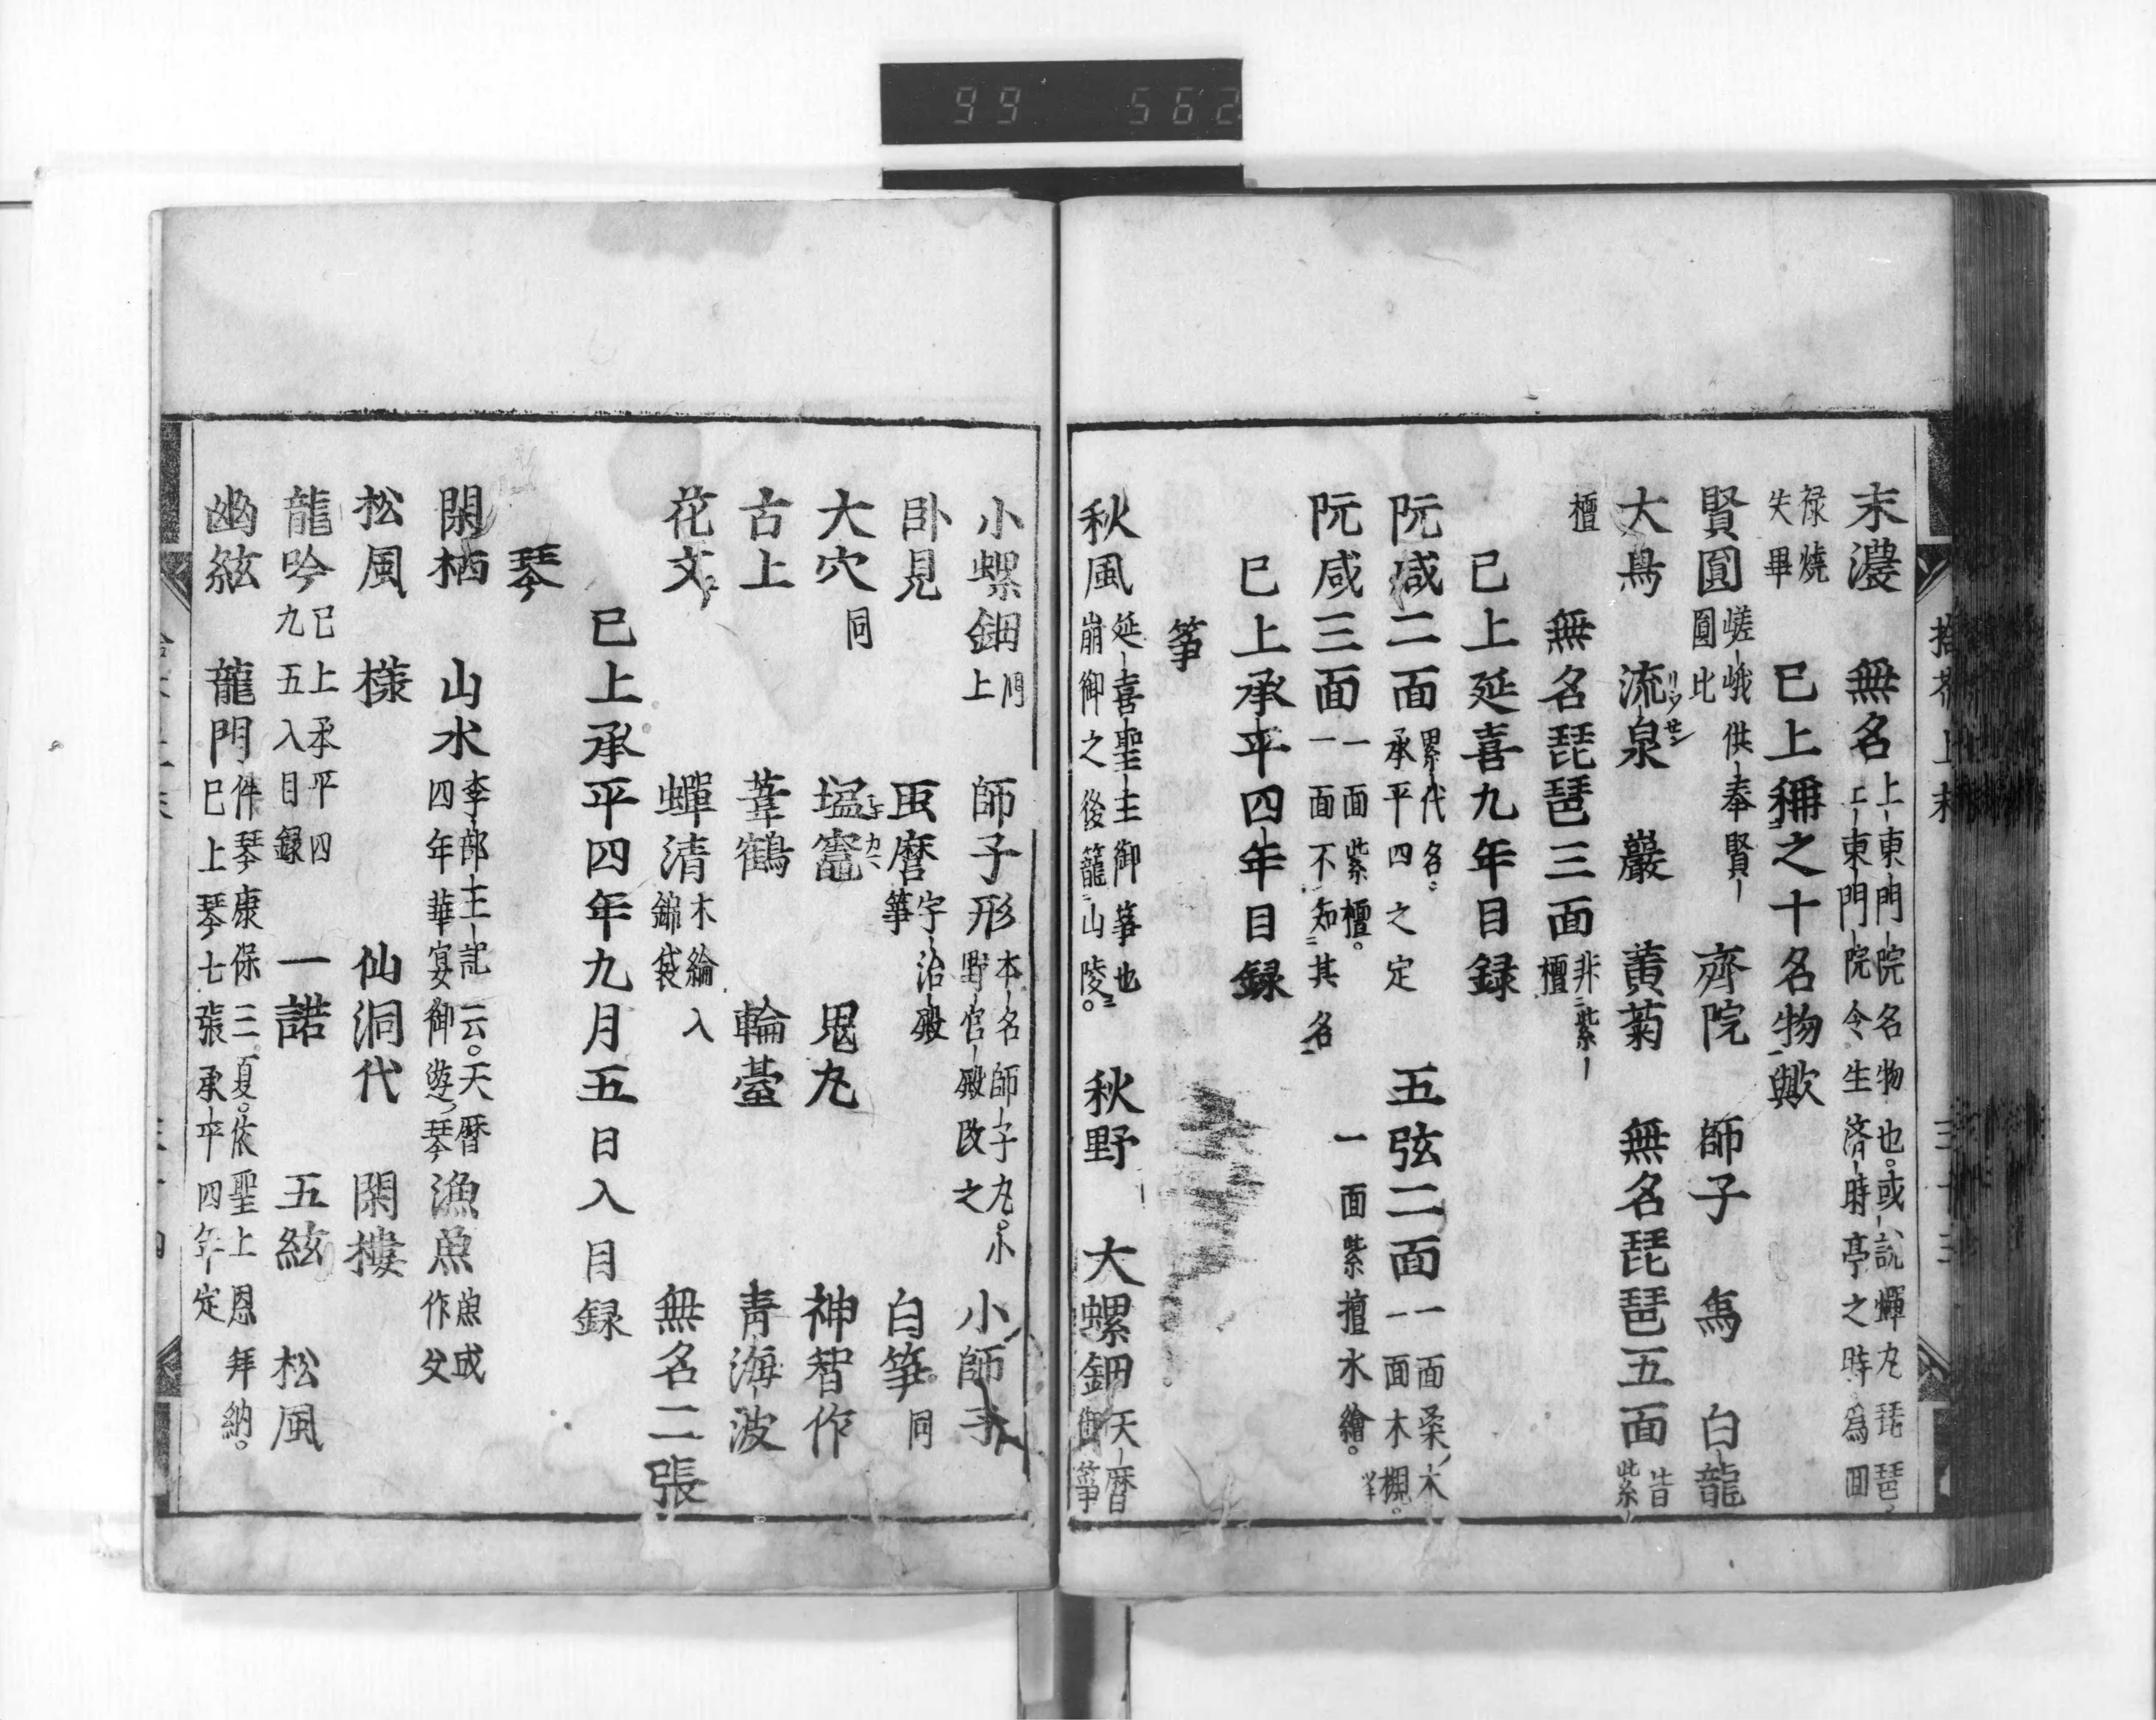 99 562
拾芥上末 三十三
末濃 無名 上東門院名物也。或説蟬丸琵琶
上東門院令生済時亭之時為囬
禄燒
失畢 已上稱之十名物歟
賢圓 嵯峨供奉賢
圓比 齊院 師子 為 白龍
大鳥 流泉 巖 黄菊 無名琵琶五面 皆
紫
檀 無名琵琶三面 非紫
檀
已上延喜九年目録
阮咸二面 累代名
承平四之定 五弦二面 一面桑木
一面木槻。
阮咸三面 一面紫檀。
一面不知其名 一面紫擅水繪。
已上承平四年目録
箏
秋風 延喜聖主御箏也
崩御之後籠山陵。 秋野 大螺鈿 天暦
御箏
小螺鈿 同
上 師子形 本名師子丸。小
野宮殿改之 小師子
卧見 䖝麿 宇治殿
箏 白箏 同
大穴 同 塭竈 鬼丸 神智作
古上 葦鶴 輪臺 青海波
花文 蟬清 木繪入
錦袋 無名二張
已上承平四年九月五日入目録
琴
閑栖 山水 李部王記云。天暦
四年華宴御遊琴 漁魚 魚或
作父
松風 樣 仙洞代 閑樓
龍吟 已上承平四
九五入目録 一諾 五絃 松風
幽絃 龍門 件琴康保三夏。依聖上恩拜納。
已上琴七張承平四年定